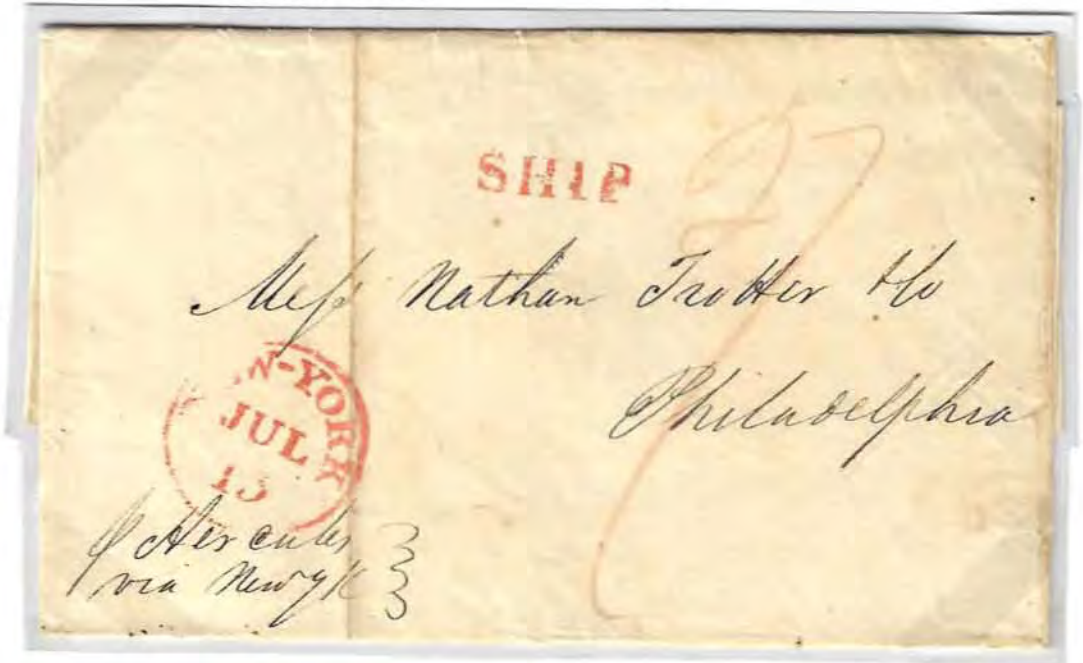 SHIP
27
Mess Nathan Trotter & Co
Philadelphia
NEW-YORK
JUL
13
p Hercules
via New Yk